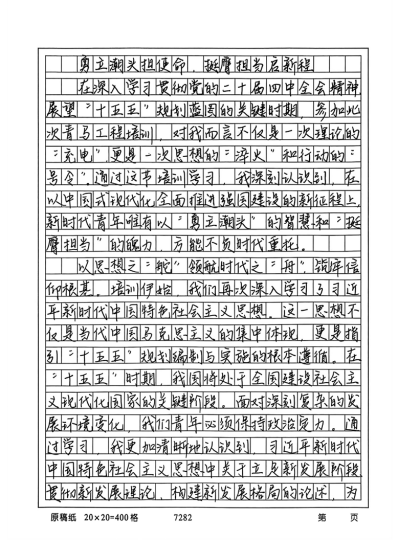 勇立潮头担使命，挺膺担当启新程
在深入学习贯彻党的二十届四中全会精神
展望“十五五”规划蓝图的关键时期，参加此
次青马工程培训，对我而言不仅是一次理论的
“充电”，更是一次思想的“淬火”和行动的“
号令”通过这节培训学习，我深刻认识到，在
以中国式现代化全面推进强国建设的新征程上，
新时代青年唯有以“勇立潮头”的智慧和“挺
膺担当”的魄力，方能不负时代重托。
以思想之“舵”领航时代之“舟”，筑牢信
仰根基。培训伊始，我们再次深入学习了习近
平新时代中国特色社会主义思想。这一思想不
仅是当代中国马克思主义的集中体现，更是指
引“十五五”规划编制与实施的根本遵循。在
“十五五”时期，我国将处于全国建设社会主
义现代化国家的关键阶段。面对深刻复杂的发
展环境变化，我们青年必须保持政治定力。通
过学习，我更加清晰地认识到，习近平新时代
中国特色社会主义思想中关于立足新发展阶段，
贯彻新发展理论，构建新发展格局的论述，为
原稿纸 20×20=400格 7282 第 页